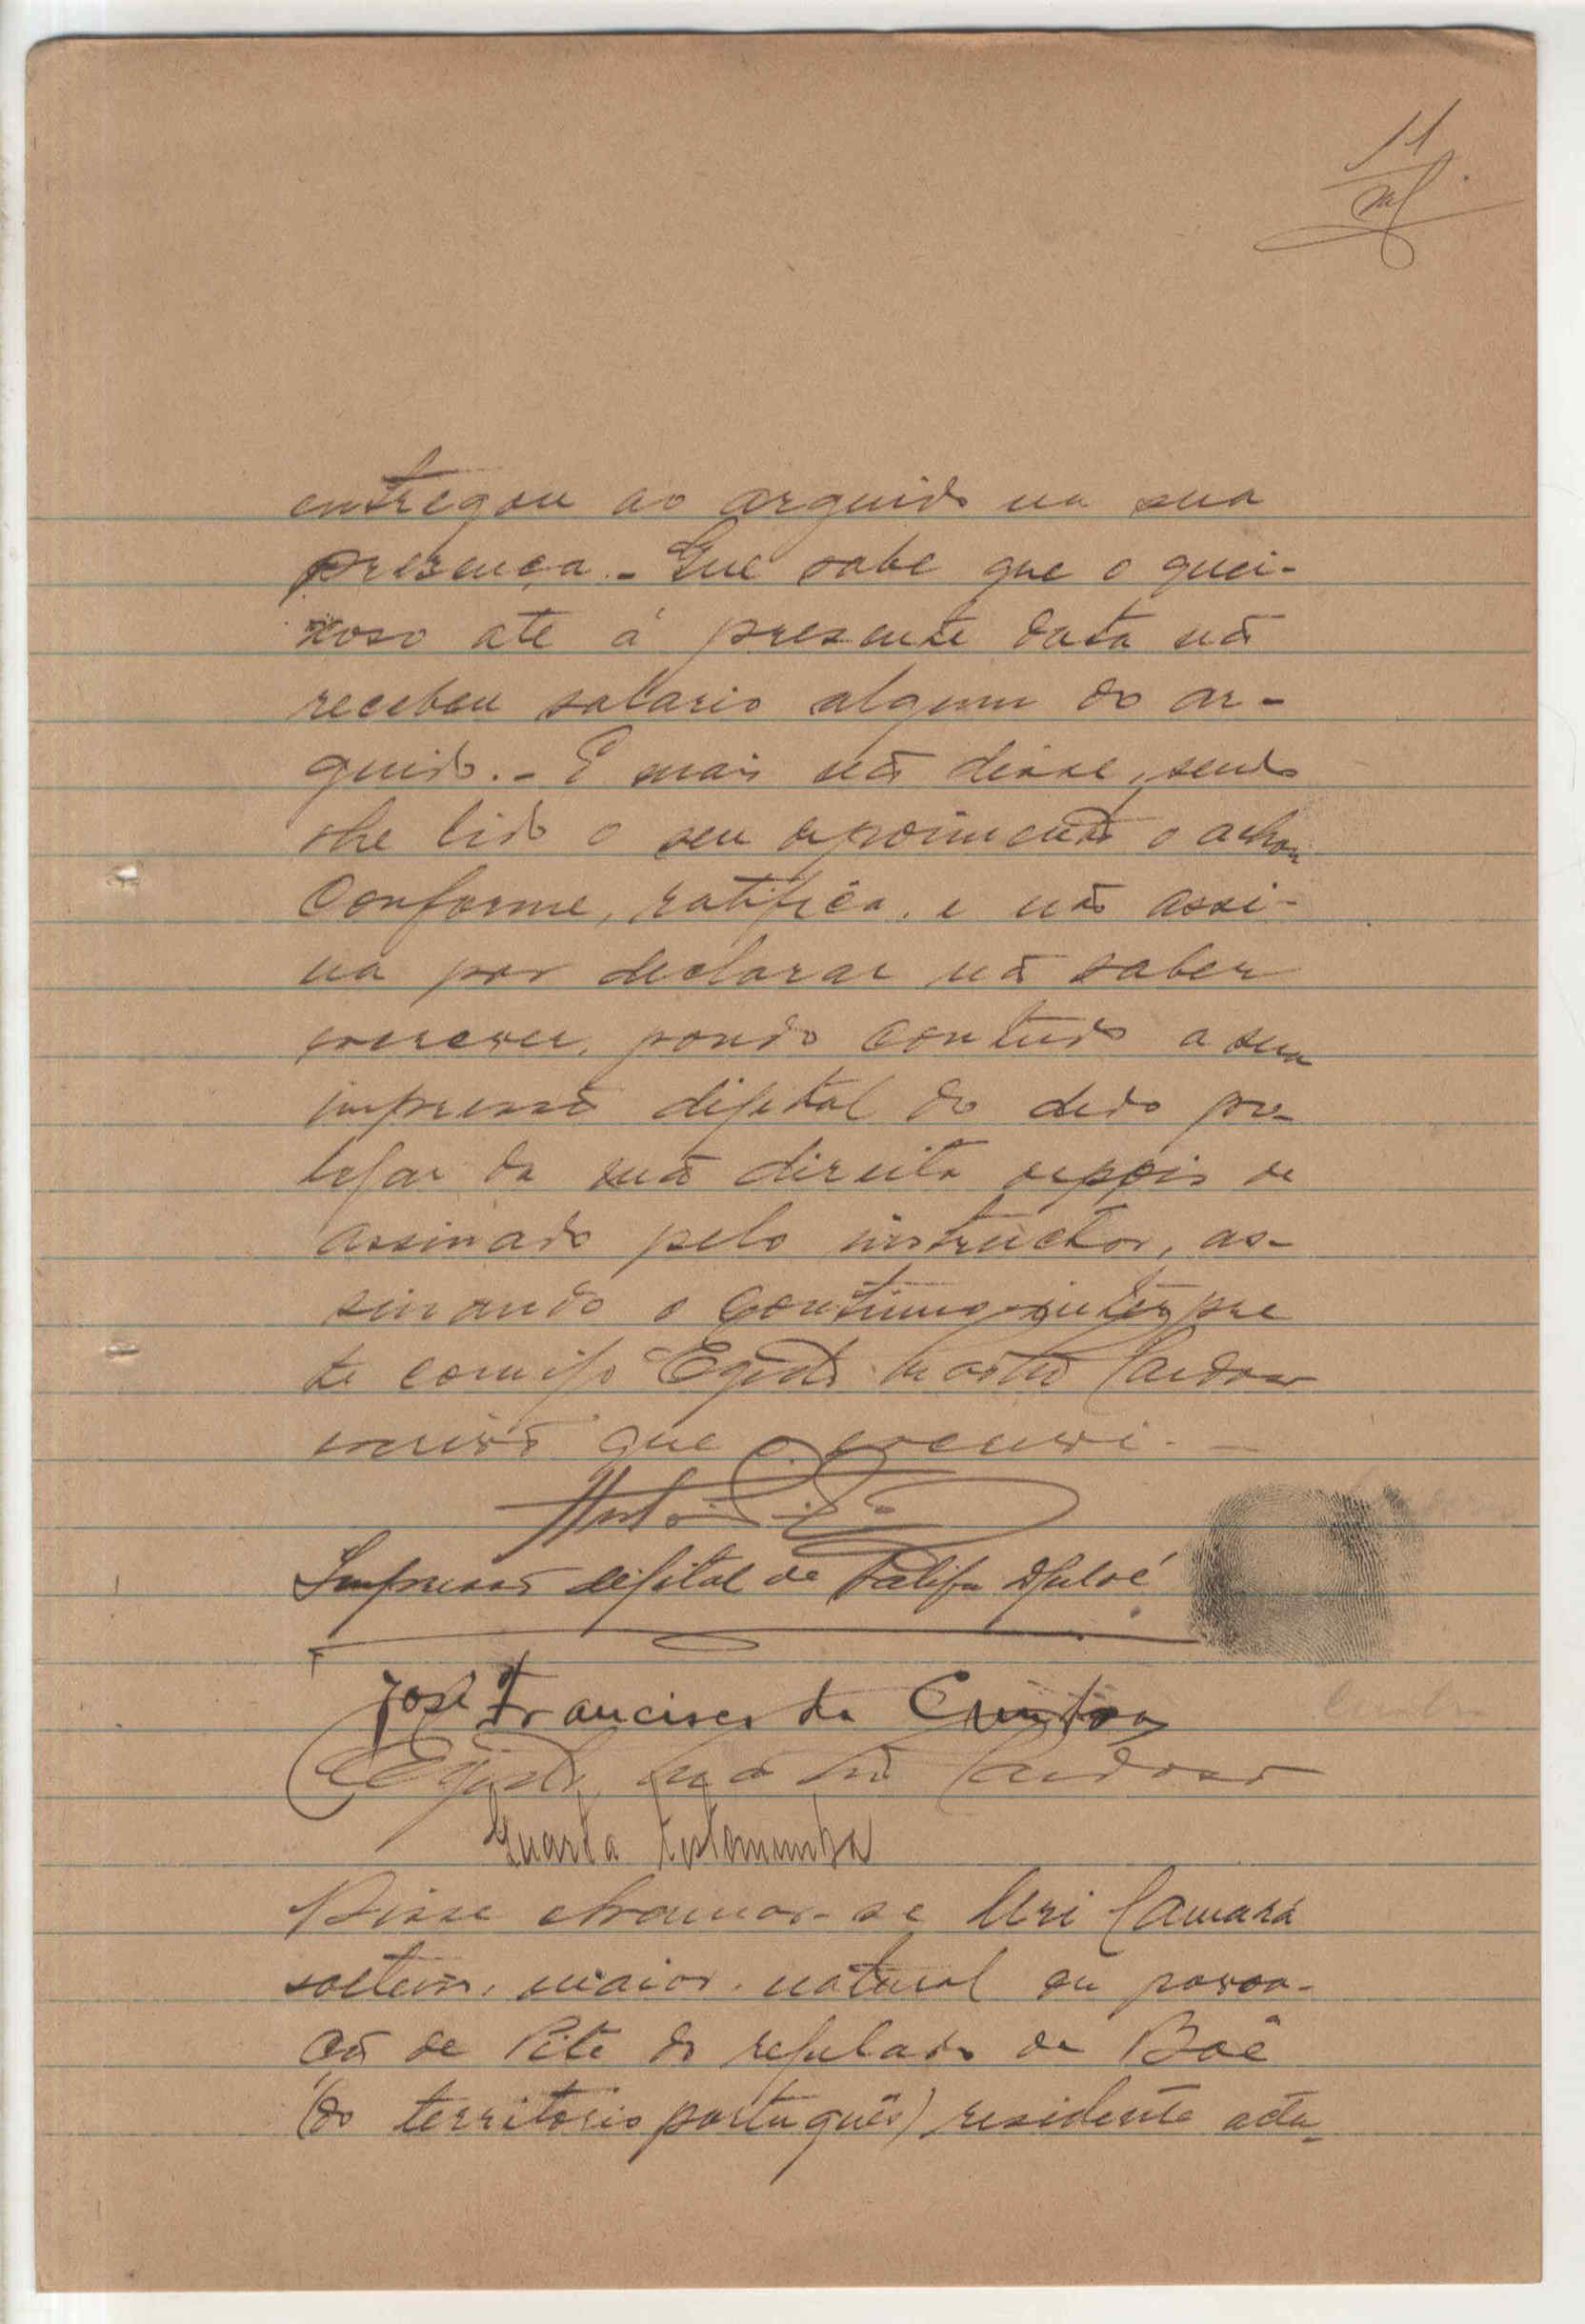 11
entregou ao arguido na sua
presença.- Que sabe que o quei-
xoso até á presente data não
recebeu salario algum do ar-
guido.- E mais não disse, sendo
lhe lido o seu depoimento o achou
conforme, ratifica, e não assi-
na por declarar não saber
escrever, pondo contudo a sua
impressão digital do dedo po-
legar da mão direita depois de
assinado pelo instructor, as-
sinando o contínuo interpre
te comigo Egidio Cardoso
escrivão que o escrevi.-
Impressão digital de
José Francisco da
Egidio Cardoso
Quarta testemunha
Disse chamar-se Uri Camará
solteiro, maior, natural da povoa-
ção de Pite do regulado de Boé
(do territorio português) residente actu-